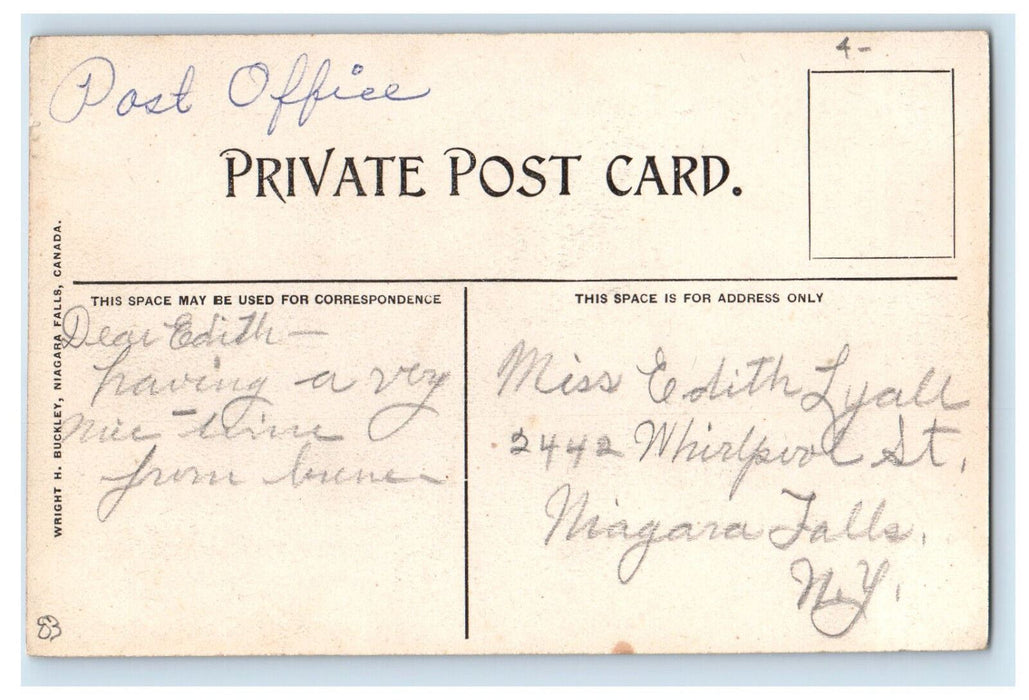 4-
Post Office
PRIVATE POST CARD.
WRIGHT H. BUCKLEY, NIAGARA FALLS, CANADA.
THIS SPACE MAY BE USED FOR CORRESPONDENCE
Dear Edith —
having a very
nice time
from
THIS SPACE IS FOR ADDRESS ONLY
Miss Edith Lyall
2442 Whirlpool St.
Niagara Falls.
N.Y.
83